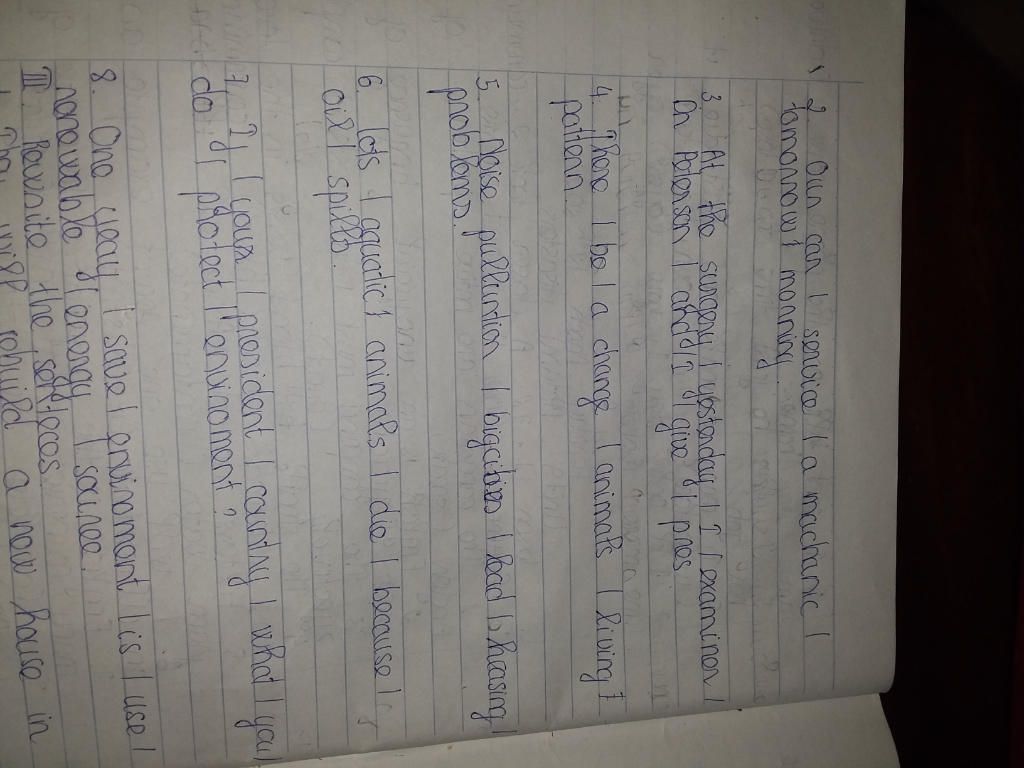 2. Our car / service / a machanic /
tomorrow / morning.
3. At the surgery / yesterday / I / examiner /
Dr Peterson / and / I give / pres
4. There / be / a change / animals / living /
pattern.
5. Noise pullution / big cities / lead / heasing /
probblems.
6. lots / aquatic / animals / die / because /
oil / spills.
7. If / your / president / country / what / you /
do / protect / envinoment?
8. One way / save / envinoment / is / use /
renewable / energy / source.
III. Rewrite the
They will rebuild a new house in